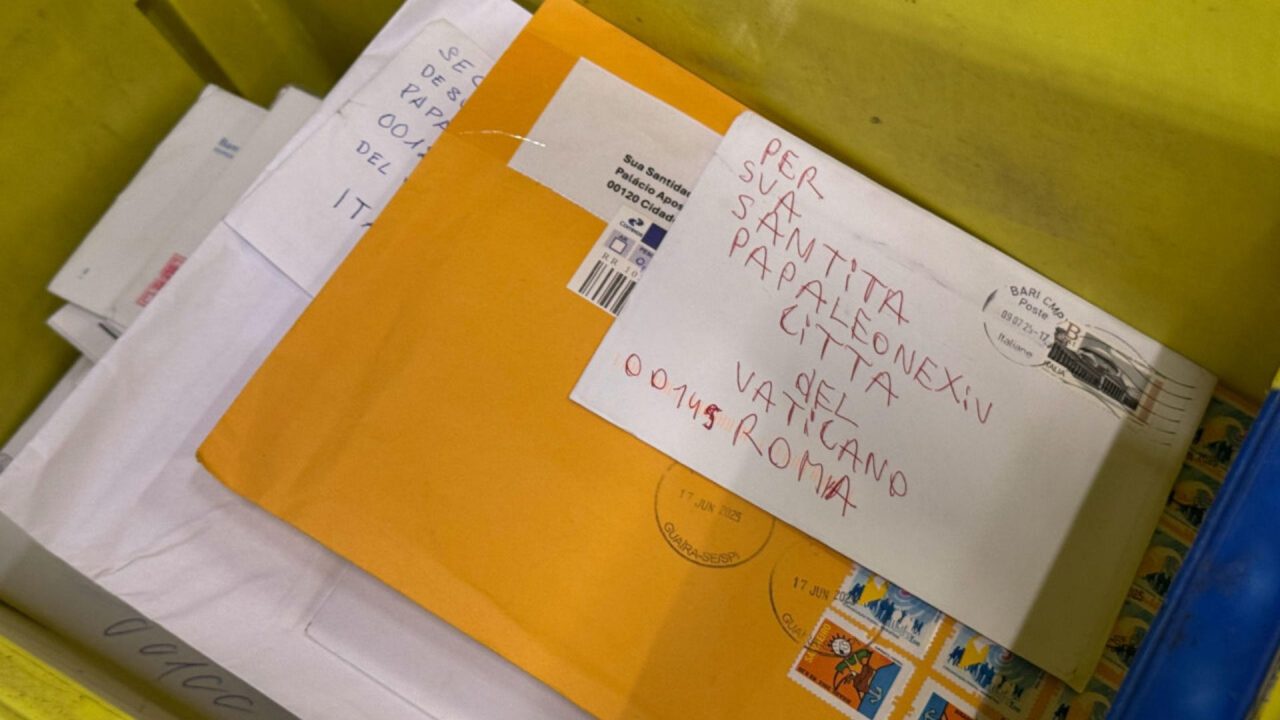 SEG
PAPA
DEL
Sua Santidad
Palácio Apos
00120 Cidad
Correios
AR
RR 10
PER
SUA
SANTiTA
PAPALEONEXiV
CiTTA
dEL
VATiCANO
00145 ROMA
BARI CMP
Poste
09 07 25-17
Italiane
B
17 JUN 2025
GUAÍRA-SE/SPI
17 JUN 202
GUA
00100